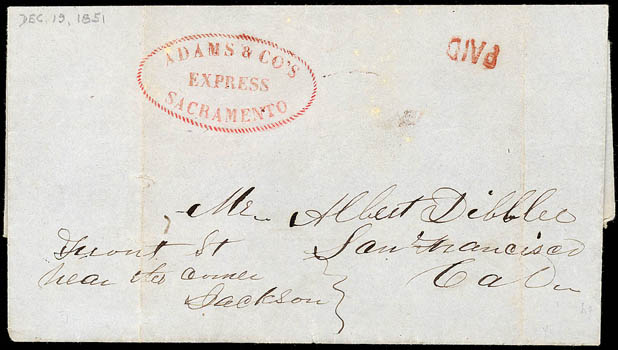 DEC. 19, 1851
ADAMS & CO'S
EXPRESS
SACRAMENTO
PAID
Mr. Albert Dibblee
San Francisco
Front St
near the corner
Jackson